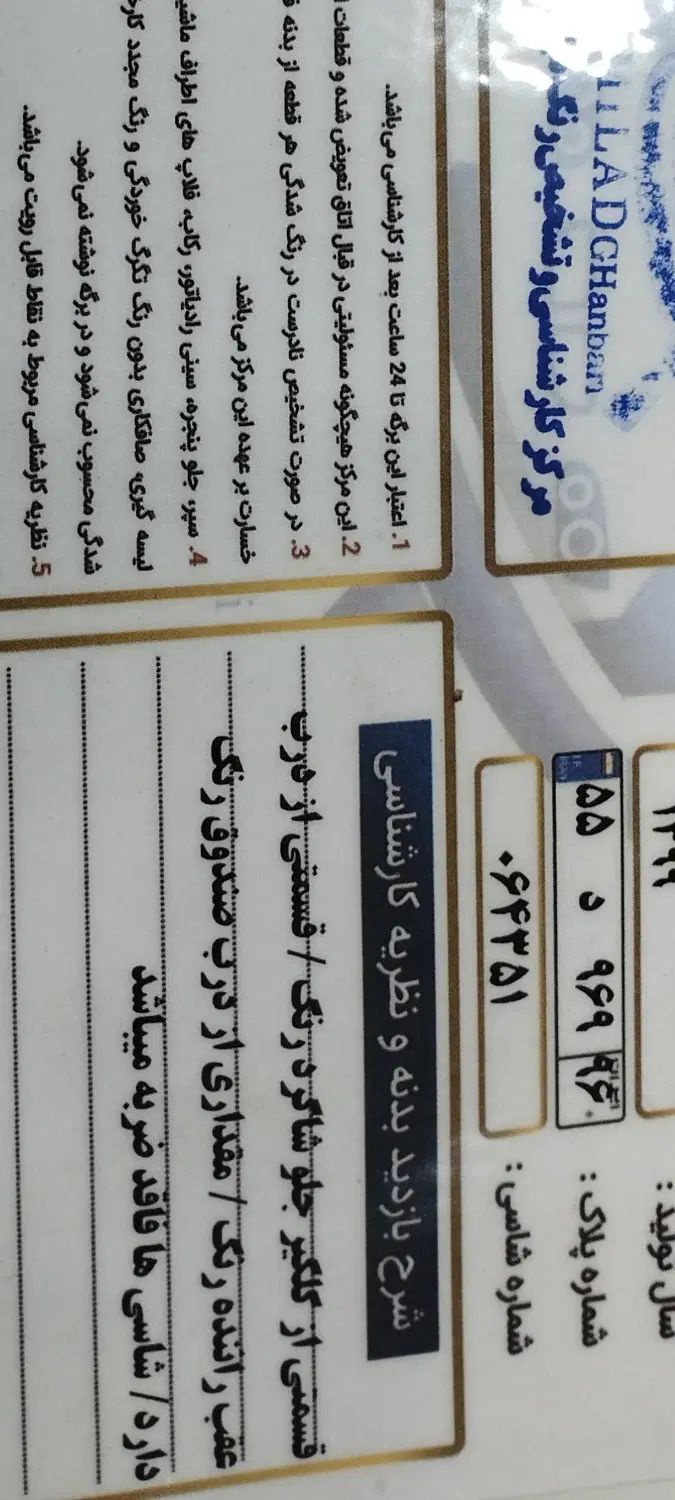 MILADGHanbari
مرکز کارشناسی و تشخیص رنگ
سال تولید :
۱۳۹۹
شماره پلاک :
۵۵ د ۹۶۹ ۹۶
شماره شاسی :
۰۶۴۳۵۱
1. اعتبار این برگه تا 24 ساعت بعد از کارشناسی می‌باشد.
2. این مرکز هیچگونه مسئولیتی در قبال اتاق تعویض شده و قطعات
3. در صورت تشخیص نادرست در رنگ شدگی هر قطعه از بدنه
خسارت بر عهده این مرکز می‌باشد.
4. سپر، جلو پنجره، سینی رادیاتور، رکاب، قلاب های اطراف
لیسه گیری، صافکاری بدون رنگ تگرگ خوردگی و رنگ مجدد
شدگی محسوب نمی‌شود و در برگه نوشته نمی‌شود.
5. نظریه کارشناسی مربوط به نقاط قابل رویت می‌باشد.
شرح بازدید بدنه و نظریه کارشناسی
قسمتی از گلگیر جلو شاگرد رنگ / قسمتی از درب
عقب راننده رنگ / مقداری از درب صندوق رنگ
دارد / شاسی ها فاقد ضربه میباشد